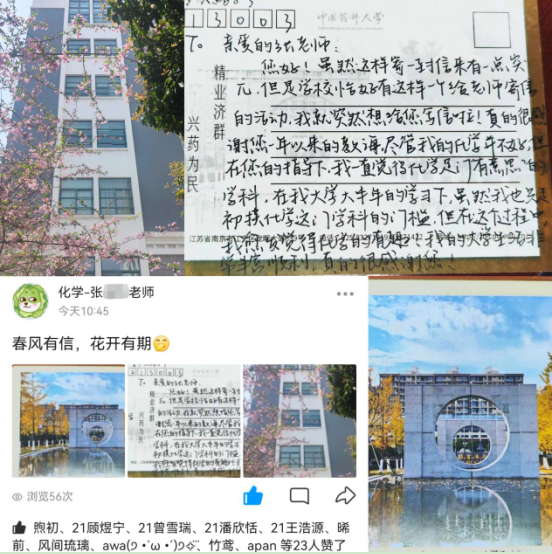 13003
中国药科大学
To 亲爱的张老师:
您好!虽然这样寄一封信来有一点突
兀,但是学校恰好有这样一个给老师寄信
的活动,我就突然想给您写信啦!真的很感
谢您一年以来的教诲,尽管我的化学不好,但
在您的指导下,我一直觉得化学是门有意思的
学科,在我大学大半年的学习下,虽然我也只是
初摸化学这门学科的门槛,但在这过程中
我愈发觉得化学的有趣,我的大学生活非
常丰富顺利,真的很感谢您!
精业济群
兴药为民
江苏省南京市
化学-张 老师
今天10:45
春风有信,花开有期
To 亲爱的张老师:
精业济群
浏览56次
煦初、21顾煜宁、21曾雪瑞、21潘欣恬、21王浩源、晞
前、风间琉璃、awa(੭ •̀ω•́)੭✧、竹鸢、apan 等23人赞了